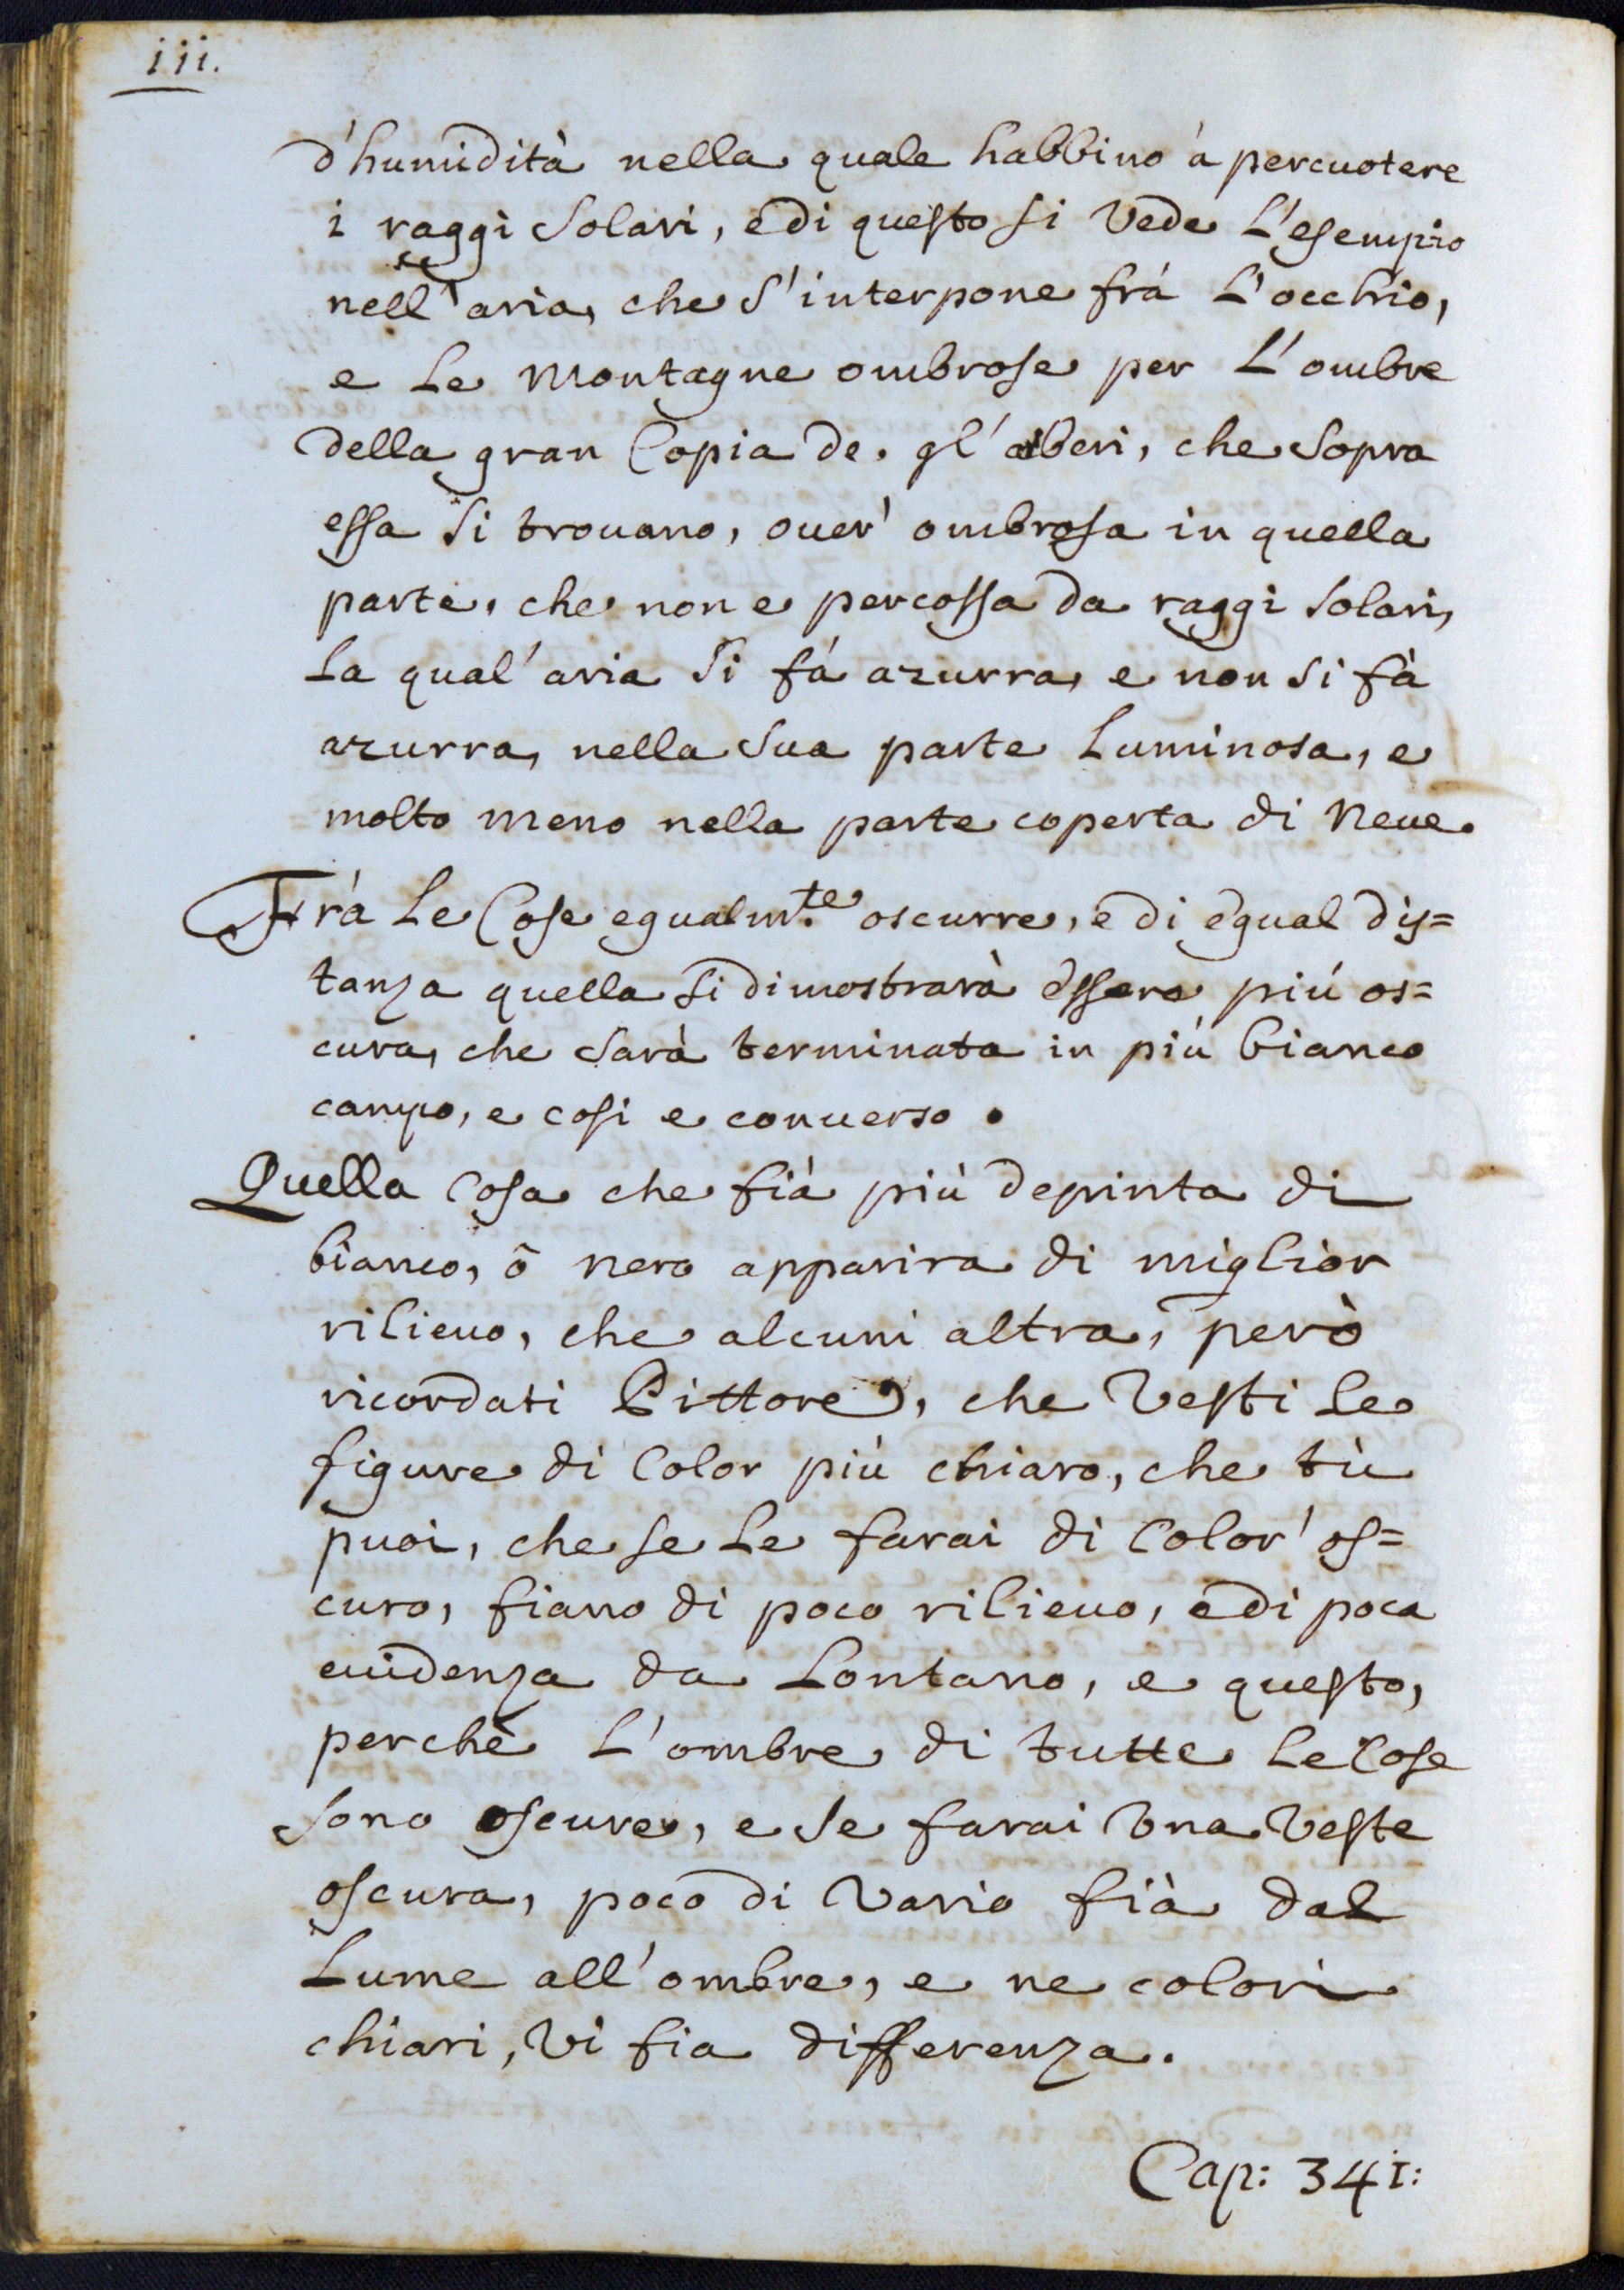 iii.
d'humidità nella quale habbino à percuotere
i raggi solari, e di questo si vede L'esempio
se
nell'aria, che s'interpone frà L'occhio,
e Le montagne ombrose per L'ombre
della gran Copia de. gl'alberi, che sopra
essa si trouano, ouer' ombrosa in quella
parte, che non e percossa da raggi solari,
La qual'aria si fà azurra, e non si fà
azurra, nella sua parte Luminosa, e
molto meno nella parte coperta di Neue.
Frà Le Cose egualm.te oscurre, e di egual dis=
tanza quella si dimostrarà essere più os=
cura, che sarà terminata in più bianco
campo, e cosi e conuerso.
Quella Cosa che fià più depinta di
bianco, ò nero apparira di miglior
rilieuo, che alcuni altra, però
ricordati Pittore, che Vesti Le
figure di Color più chiaro, che tù
puoi, che se Le farai di Color' os=
curo, fiano di poco rilieuo, e di poca
euidenza da Lontano, e questo,
perchè L'ombre di tutte Le Cose
sono oscure, e se farai Vna Veste
oscura, poco di Vario fià dal
Lume all'ombre, e ne colori
chiari, Vi fia differenza.
Cap: 341: